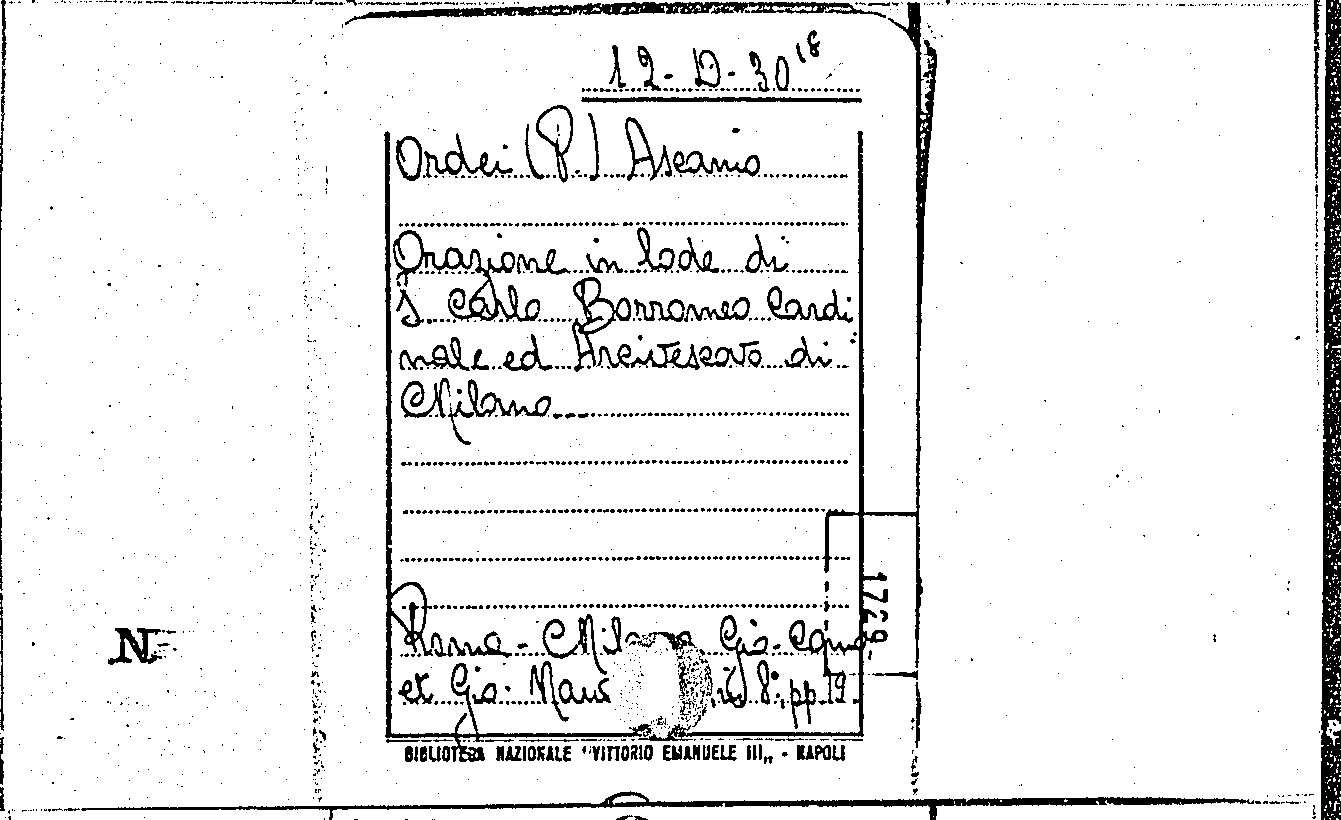 12-D-30 18
Ordei (P.) Ascanio
Orazione in lode di
S. Carlo Borromeo Cardi
nale ed Arcivescovo di
Milano...
Roma - Milano Gio.
et Gio. 8°, pp. 19.
BIBLIOTECA NAZIONALE "VITTORIO EMANUELE III„ - NAPOLI
N